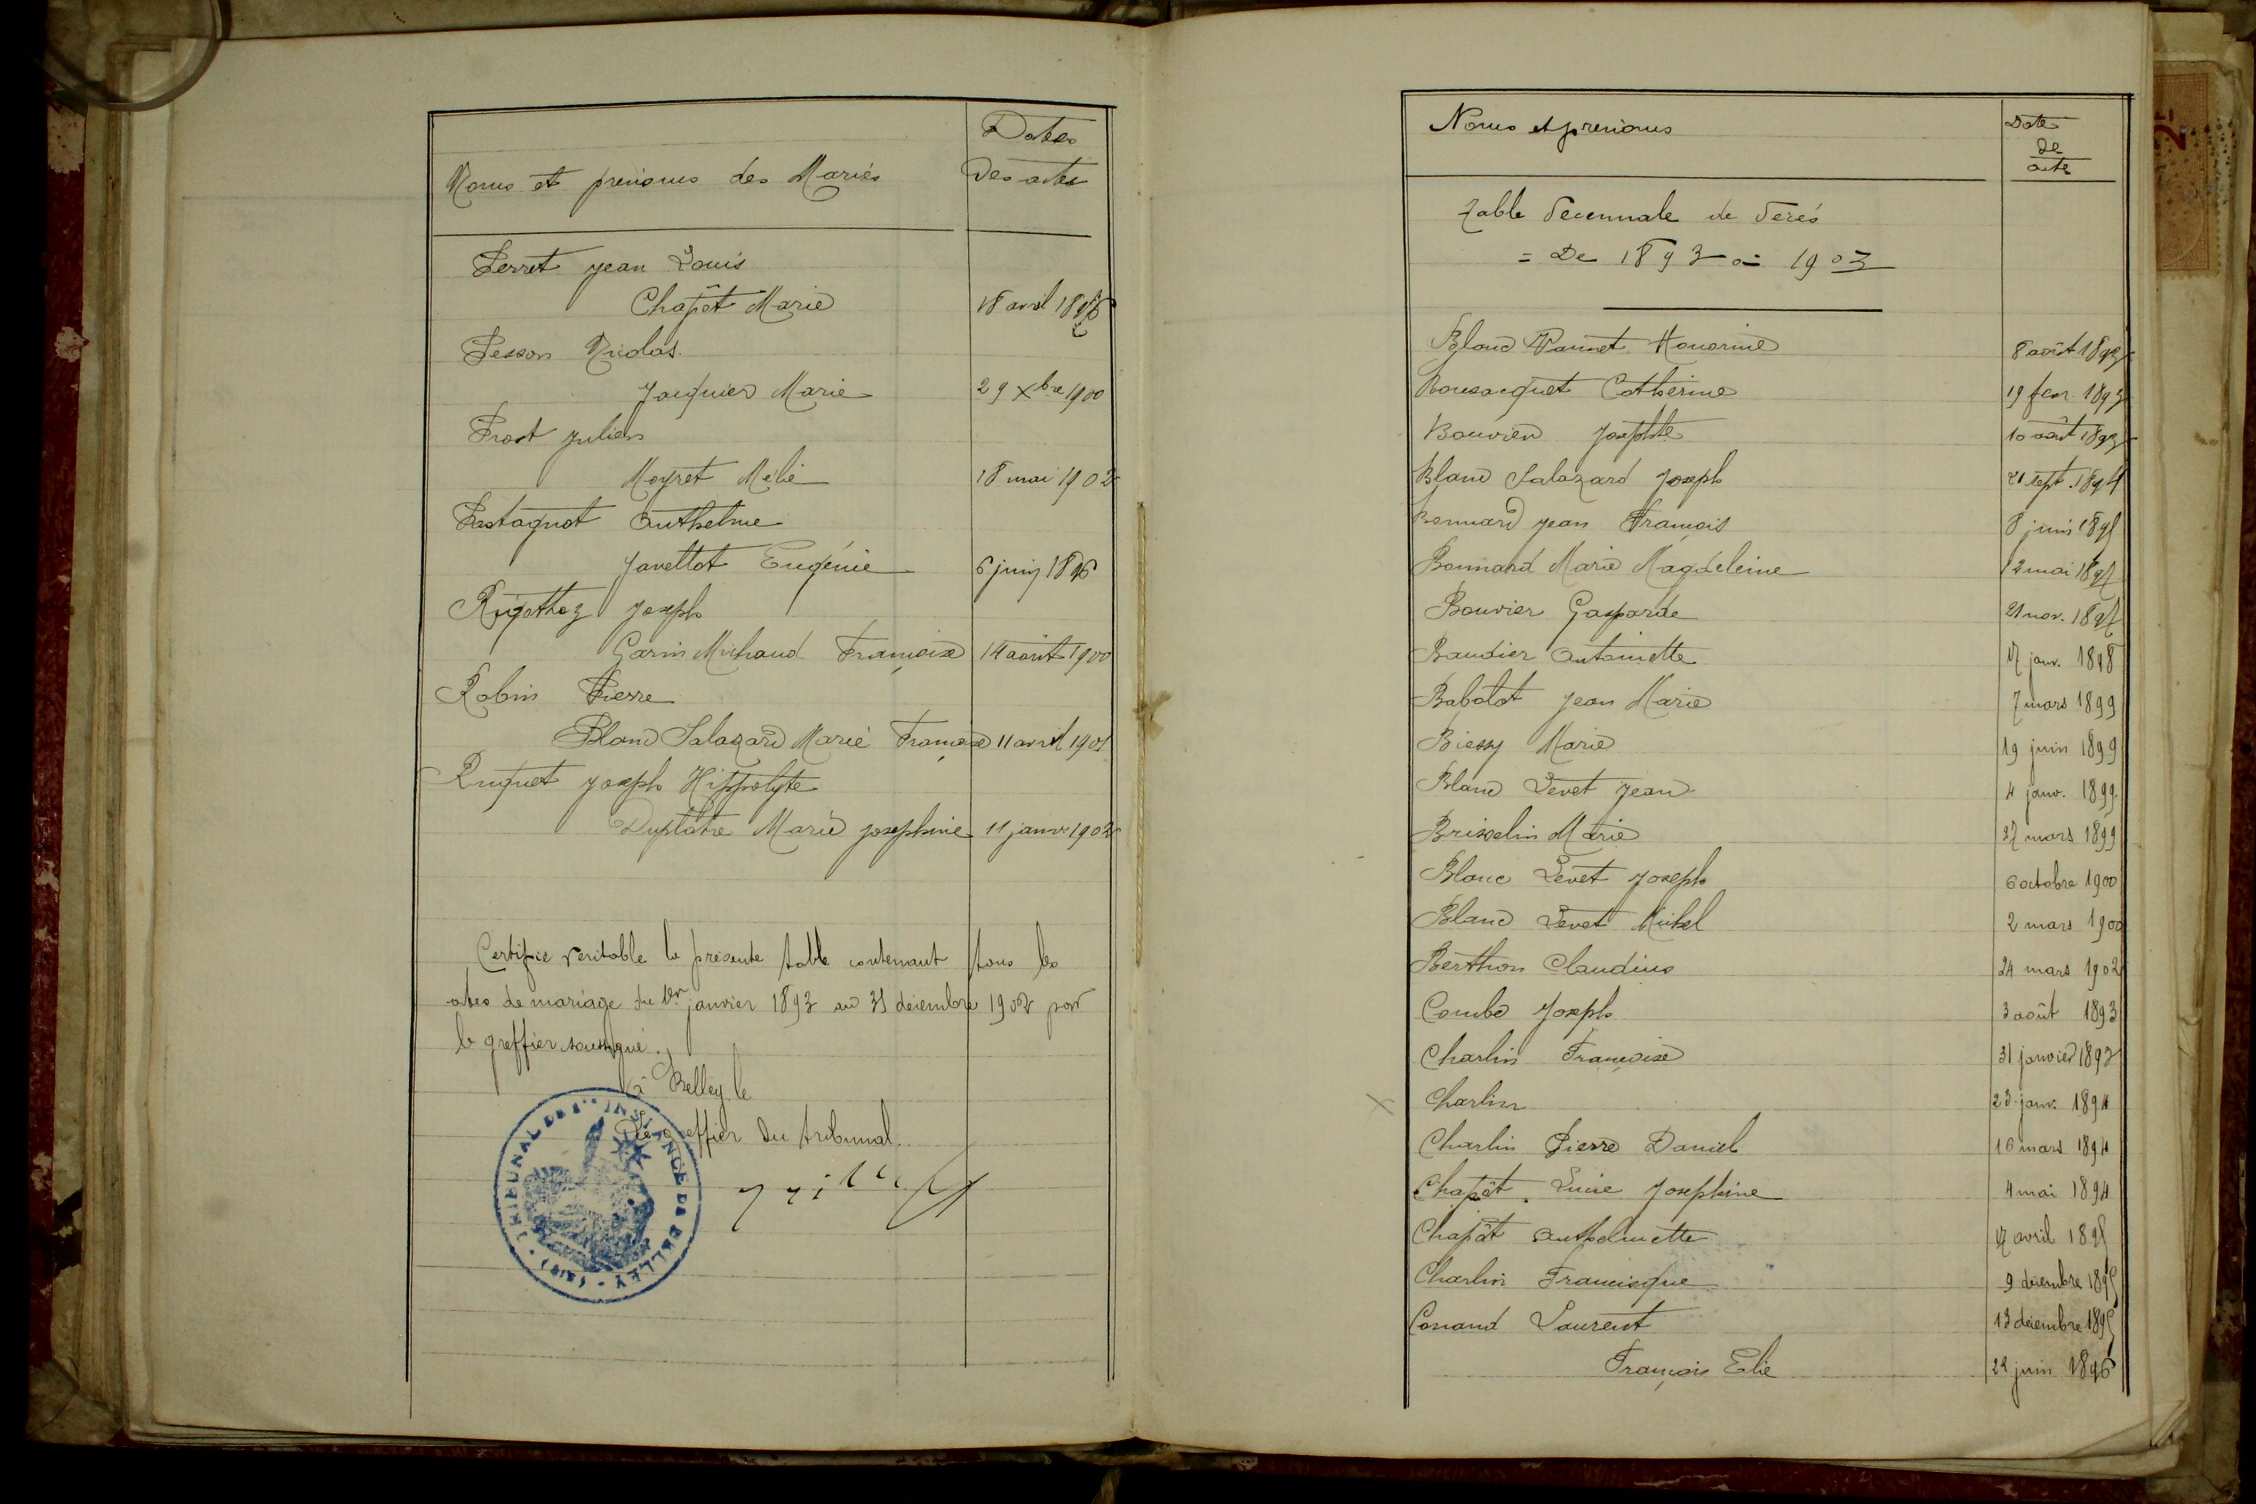 Dates
Noms et prénoms des Mariés Des actes
Perret jean Louis
Chapôt Marie 18 avril 1896
Pesson Nicolas
Jacquier Marie 29 Xbre 1900
Prost julien
Meyret Mélie 18 mai 1902
Pastagnot Anthelme
Javellot Eugénie 6 juin 1896
Rigothaz Joseph
Garin Michaud Françoise 14 août 1900
Robin Pierre
Blanc Salazard Marie Françoise 11 avril 1901
Ruquet Joseph Hippolyte
Duplatre Marie josephine 11 janv 1902
Certifie veritable la présente table contenant tous les
actes de mariage du 1er janvier 1893 au 31 décembre 1902 par
le greffier soussigné.
à Belley le
Le greffier du tribunal
TRIBUNAL DE 1re INSTANCE DE BELLEY (AIN)
Noms et prénoms Date
de
acte
Table Decennale de Décés
= De 1893 à 1903
Blanc Pannet Honorine 8 août 1893
Bousacquet Catherine 19 fevr. 1893
Bouvier Josephte 10 août 1893
Blanc Salazard Joseph 21 sept. 1894
Bonnard jean François 8 juin 1895
Bonnard Marie Magdeleine 12 mai 1897
Bouvier Gasparde 21 nov. 1897
Baudier Antoinette 17 janv. 1898
Babolat Jean Marie 7 mars 1899
Biessy Marie 19 juin 1899
Blanc Levet Jean 4 janv. 1899
Brisselin Marie 27 mars 1899
Blanc Levet Joseph 6 octobre 1900
Blanc Levet Michel 2 mars 1900
Berthon Claudius 24 mars 1902
Combe Joseph 3 août 1893
Charlin Françoise 31 janvier 1893
Charlin 23 janv. 1894
Charlin Pierre Daniel 16 mars 1894
Chapôt Lucie Josephine 4 mai 1894
Chapôt Anthelmette 17 avril 1895
Charlin Francisque 9 décembre 1895
Conand Laurent 13 décembre 1895
François Elie 22 juin 1896